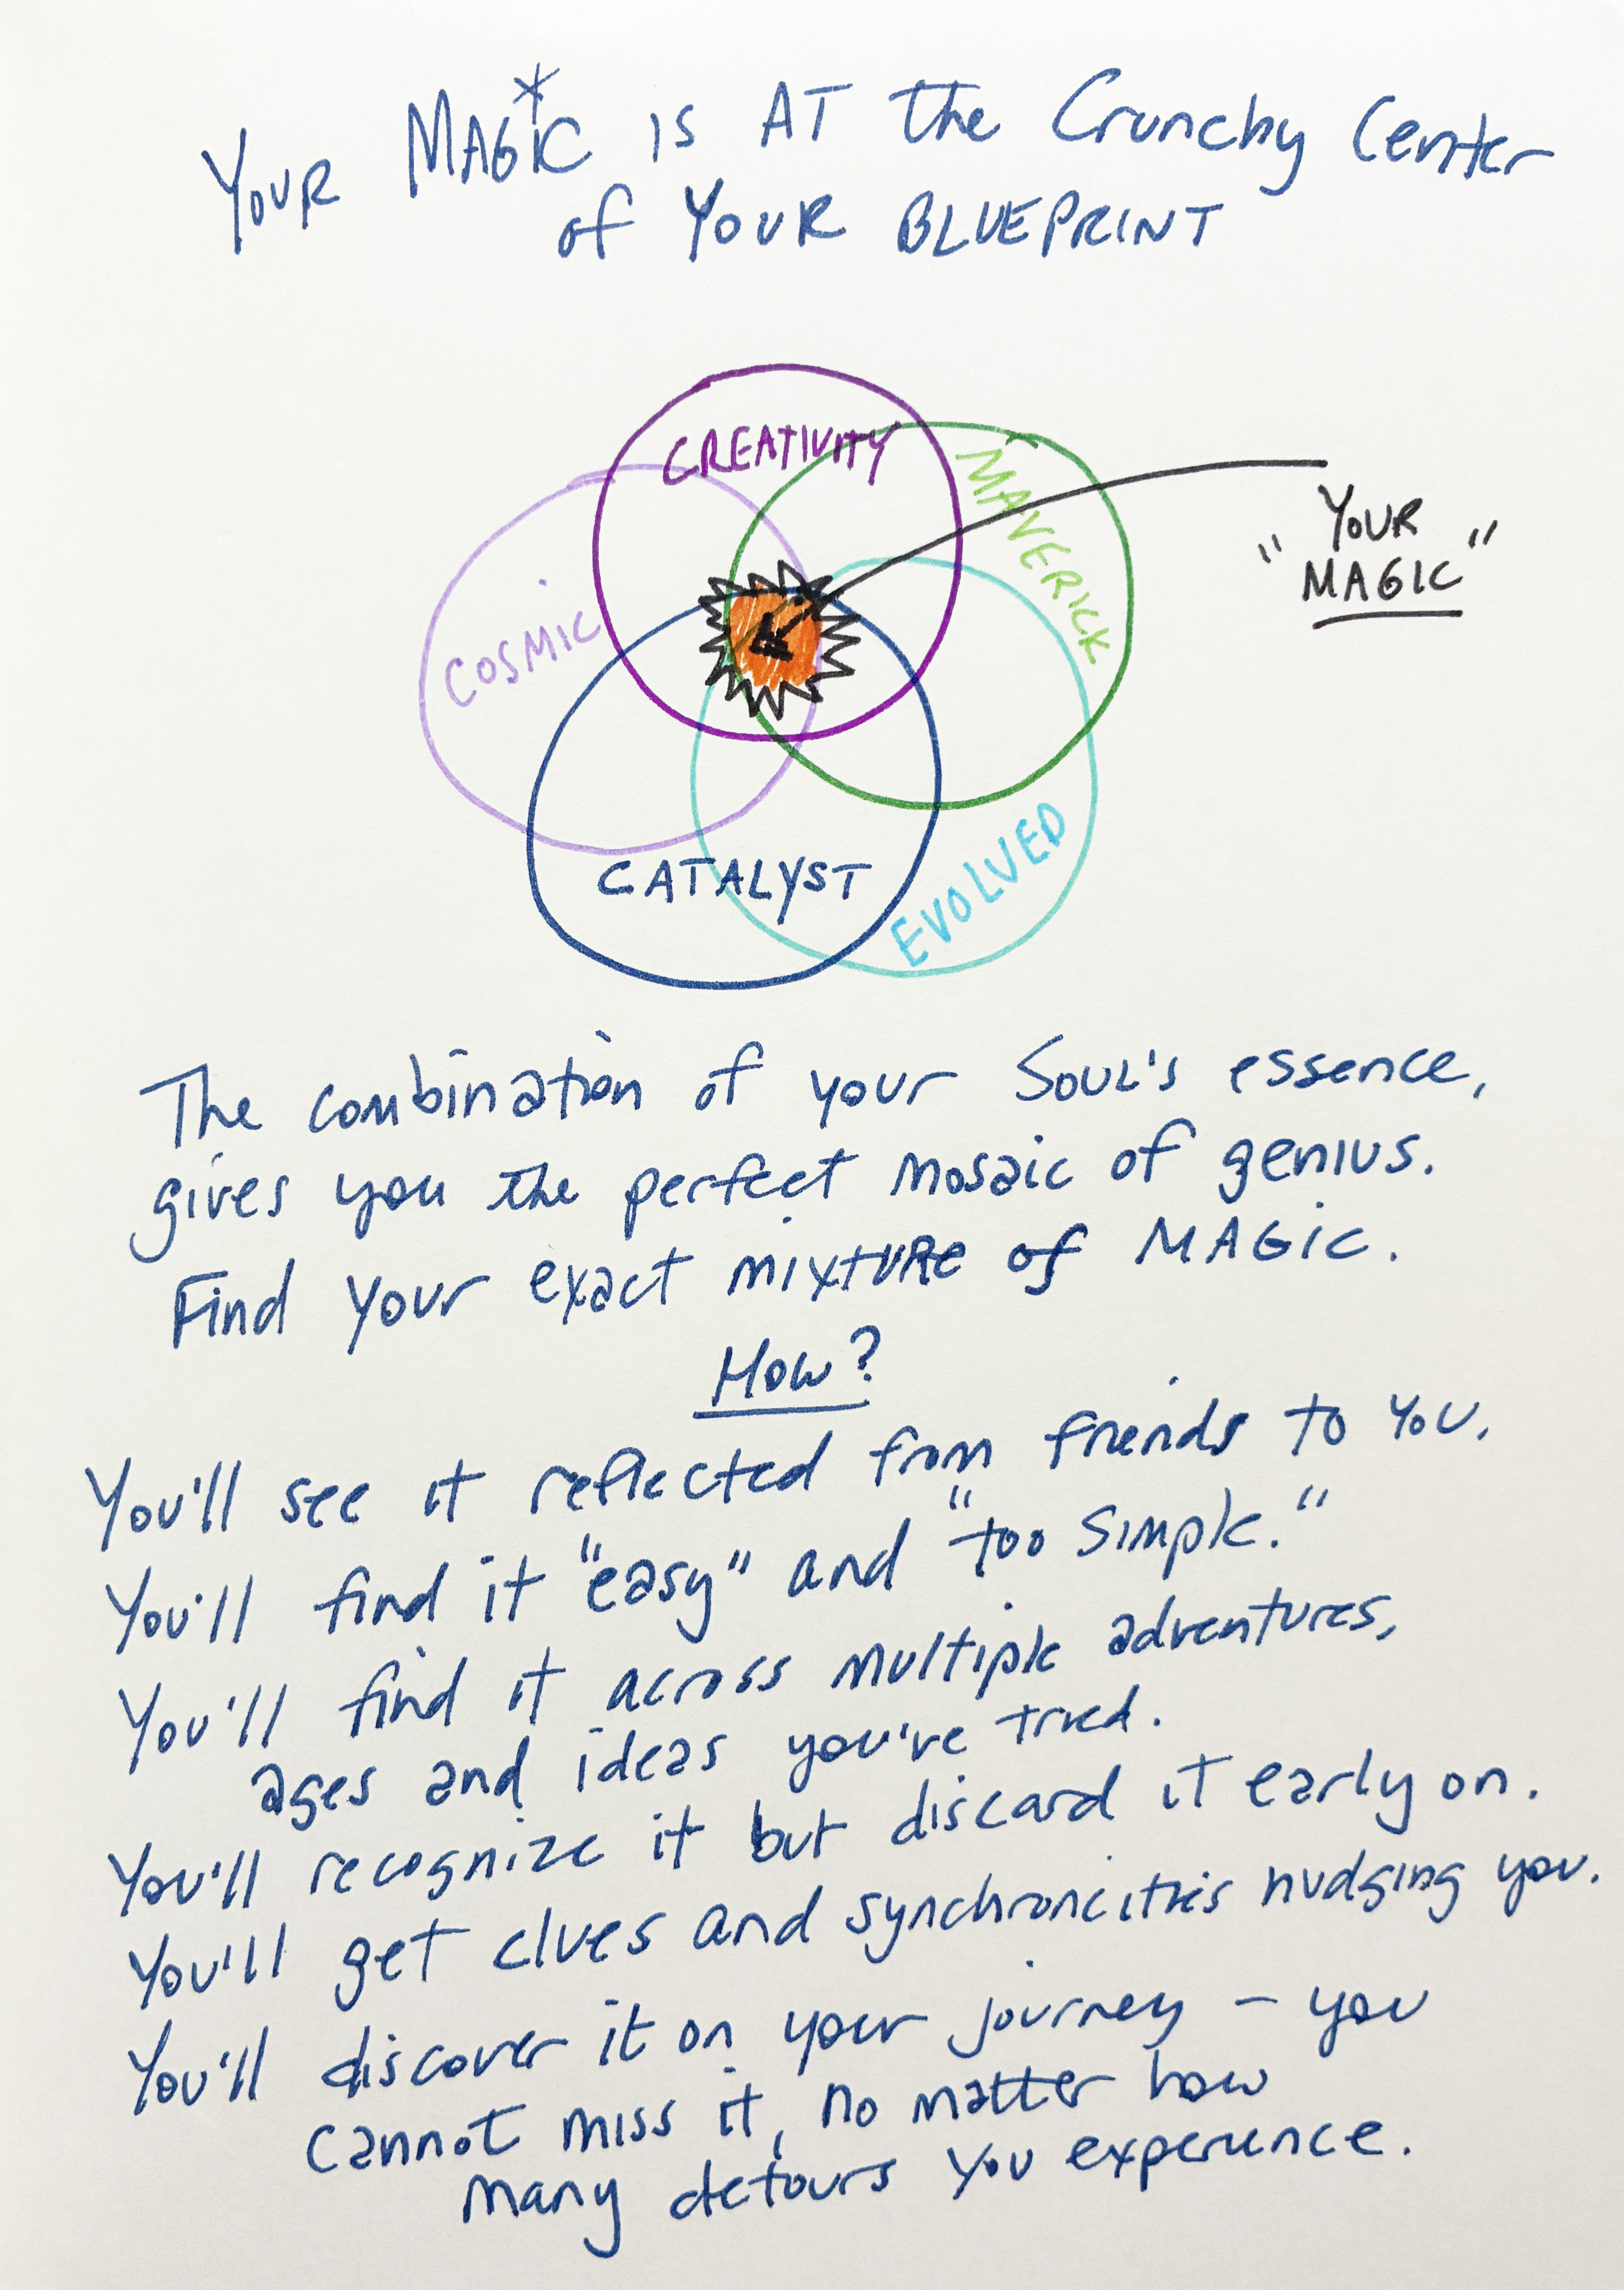 YOUR MAGIC* IS AT the Crunchy Center
of YOUR BLUEPRINT
CREATIVITY
MAVERICK
"YOUR
MAGIC"
COSMIC
CATALYST
EVOLVED
The combination of your SOUL'S essence,
gives you the perfect mosaic of genius.
Find your exact mixture of MAGiC.
How?
You'll see it reflected from friends to you.
You'll find it "easy" and "too simple."
You'll find it across multiple adventures,
ages and ideas you've tried.
You'll recognize it but discard it early on.
You'll get clues and synchronicities nudging you.
You'll discover it on your journey - you
cannot miss it, no matter how
many detours you experience.